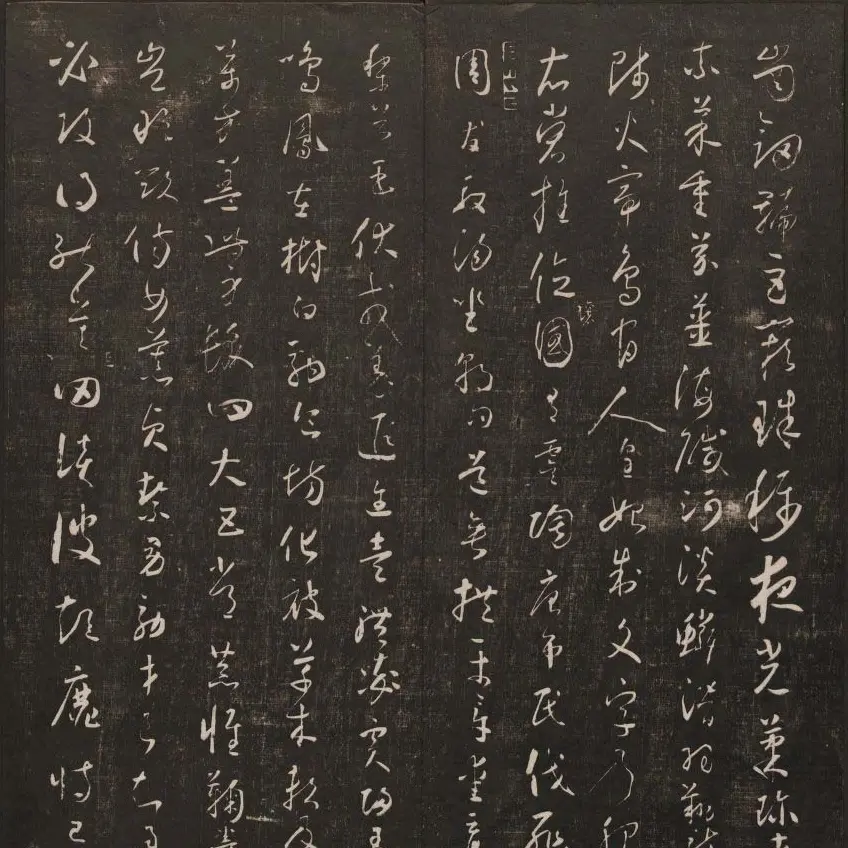 岡劍號巨闕珠稱夜光菓珍李
柰菜重芥薑海鹹河淡鱗潛羽翔龍
師火帝鳥官人皇始制文字乃服
衣裳推位讓國有虞陶唐弔民伐罪
周發殷湯坐朝問道垂拱平章愛育
黎首臣伏戎羌遐邇壹體率賓歸王
鳴鳳在樹白駒食場化被草木賴及
萬方蓋此身髮四大五常恭惟鞠養
豈敢毀傷女慕貞絜男效才良知過
必改得能莫罔談彼短靡恃己